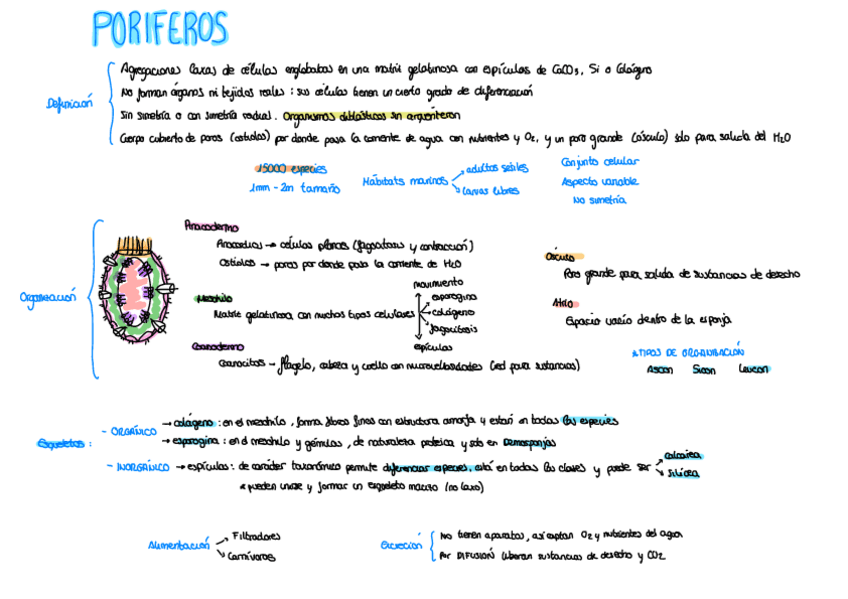 PORIFEROS
Definición
Agregaciones laxas de células englobadas en una matriz gelatinosa con espículas de CaCO3, Si o Colágeno
No forman órganos ni tejidos reales: sus células tienen un cierto grado de diferenciación
Sin simetría o con simetría radial. Organismos diblásticos sin arquénteron
Cuerpo cubierto de poros (ostiolos) por donde pasa la corriente de agua con nutrientes y O2, y un poro grande (ósculo) solo para salida del H2O
15000 especies
1mm - 2m tamaño
Hábitats marinos
adultos sésiles
larvas libres
Conjunto celular
Aspecto variable
No simetría
Organización
Pinacodermo
Pinacocitos → células planas (fagocitosis y contracción)
Ostiolos → poros por donde pasa la corriente de H2O
Mesohilo
Matriz gelatinosa con muchos tipos celulares
movimiento
esporogina
colágeno
fagocitosis
espículas
Coanodermo
Coanocitos → flagelo, cabeza y cuello con microvellosidades (red para sustancias)
Ósculo
Poro grande para salida de sustancias de desecho
Atrio
Espacio vacío dentro de la esponja
*TIPOS DE ORGANIZACIÓN
Ascon Sicon Leucon
Esqueletos:
- ORGÁNICO
→ colágeno: en el mesohilo, forma fibras finas con estructura amorfa y están en todas las especies
→ esporogina: en el mesohilo y gémulas, de naturaleza proteica y solo en Demosponjas
- INORGÁNICO → espículas: de carácter taxonómico permite diferenciar especies, está en todas las clases y puede ser
calcárea
silícea
* pueden unirse y formar un esqueleto macizo (no laxo)
Alimentación
Filtradores
Carnívoros
Excreción
No tienen aparatos, así captan O2 y nutrientes del agua
Por DIFUSIÓN liberan sustancias de desecho y CO2